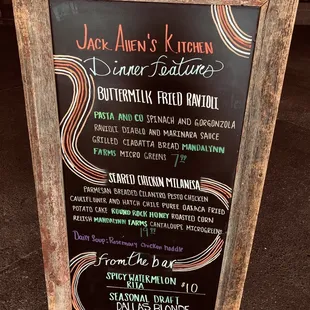 Jack Allen's Kitchen
Dinner Features
Buttermilk Fried Ravioli
Pasta and Co Spinach and Gorgonzola
Ravioli Diablo and Marinara Sauce
Grilled Ciabatta Bread Mandalynn
Farms Micro Greens 7.99
Seared Chicken Milanesa
Parmesan Breaded Cilantro Pesto Chicken
Cauliflower and Hatch Chile Puree Oaxaca Fried
Potato Cake Round Rock Honey Roasted Corn
Relish Mandalynn Farms Cantaloupe Microgreens
19.99
Daily Soup: Rosemary Chicken Noodle
from the bar
Spicy Watermelon
Rita $10
Seasonal Draft
Dallas Blonde